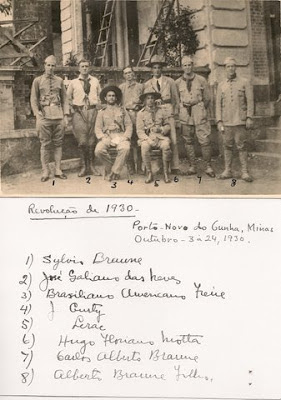 1 2 3 4 5 6 7 8
Revolução de 1930-
Porto-Novo do Cunha, Minas
Outubro-3 à 24, 1930.
1) Sylvio Braune
2) José Galiano das Neves
3) Brasiliano Americano Freire
4) J Curty
5) Lerac
6) Hugo Floriano Motta
7) Carlos Alberto Braune
8) Alberto Braune Filho,